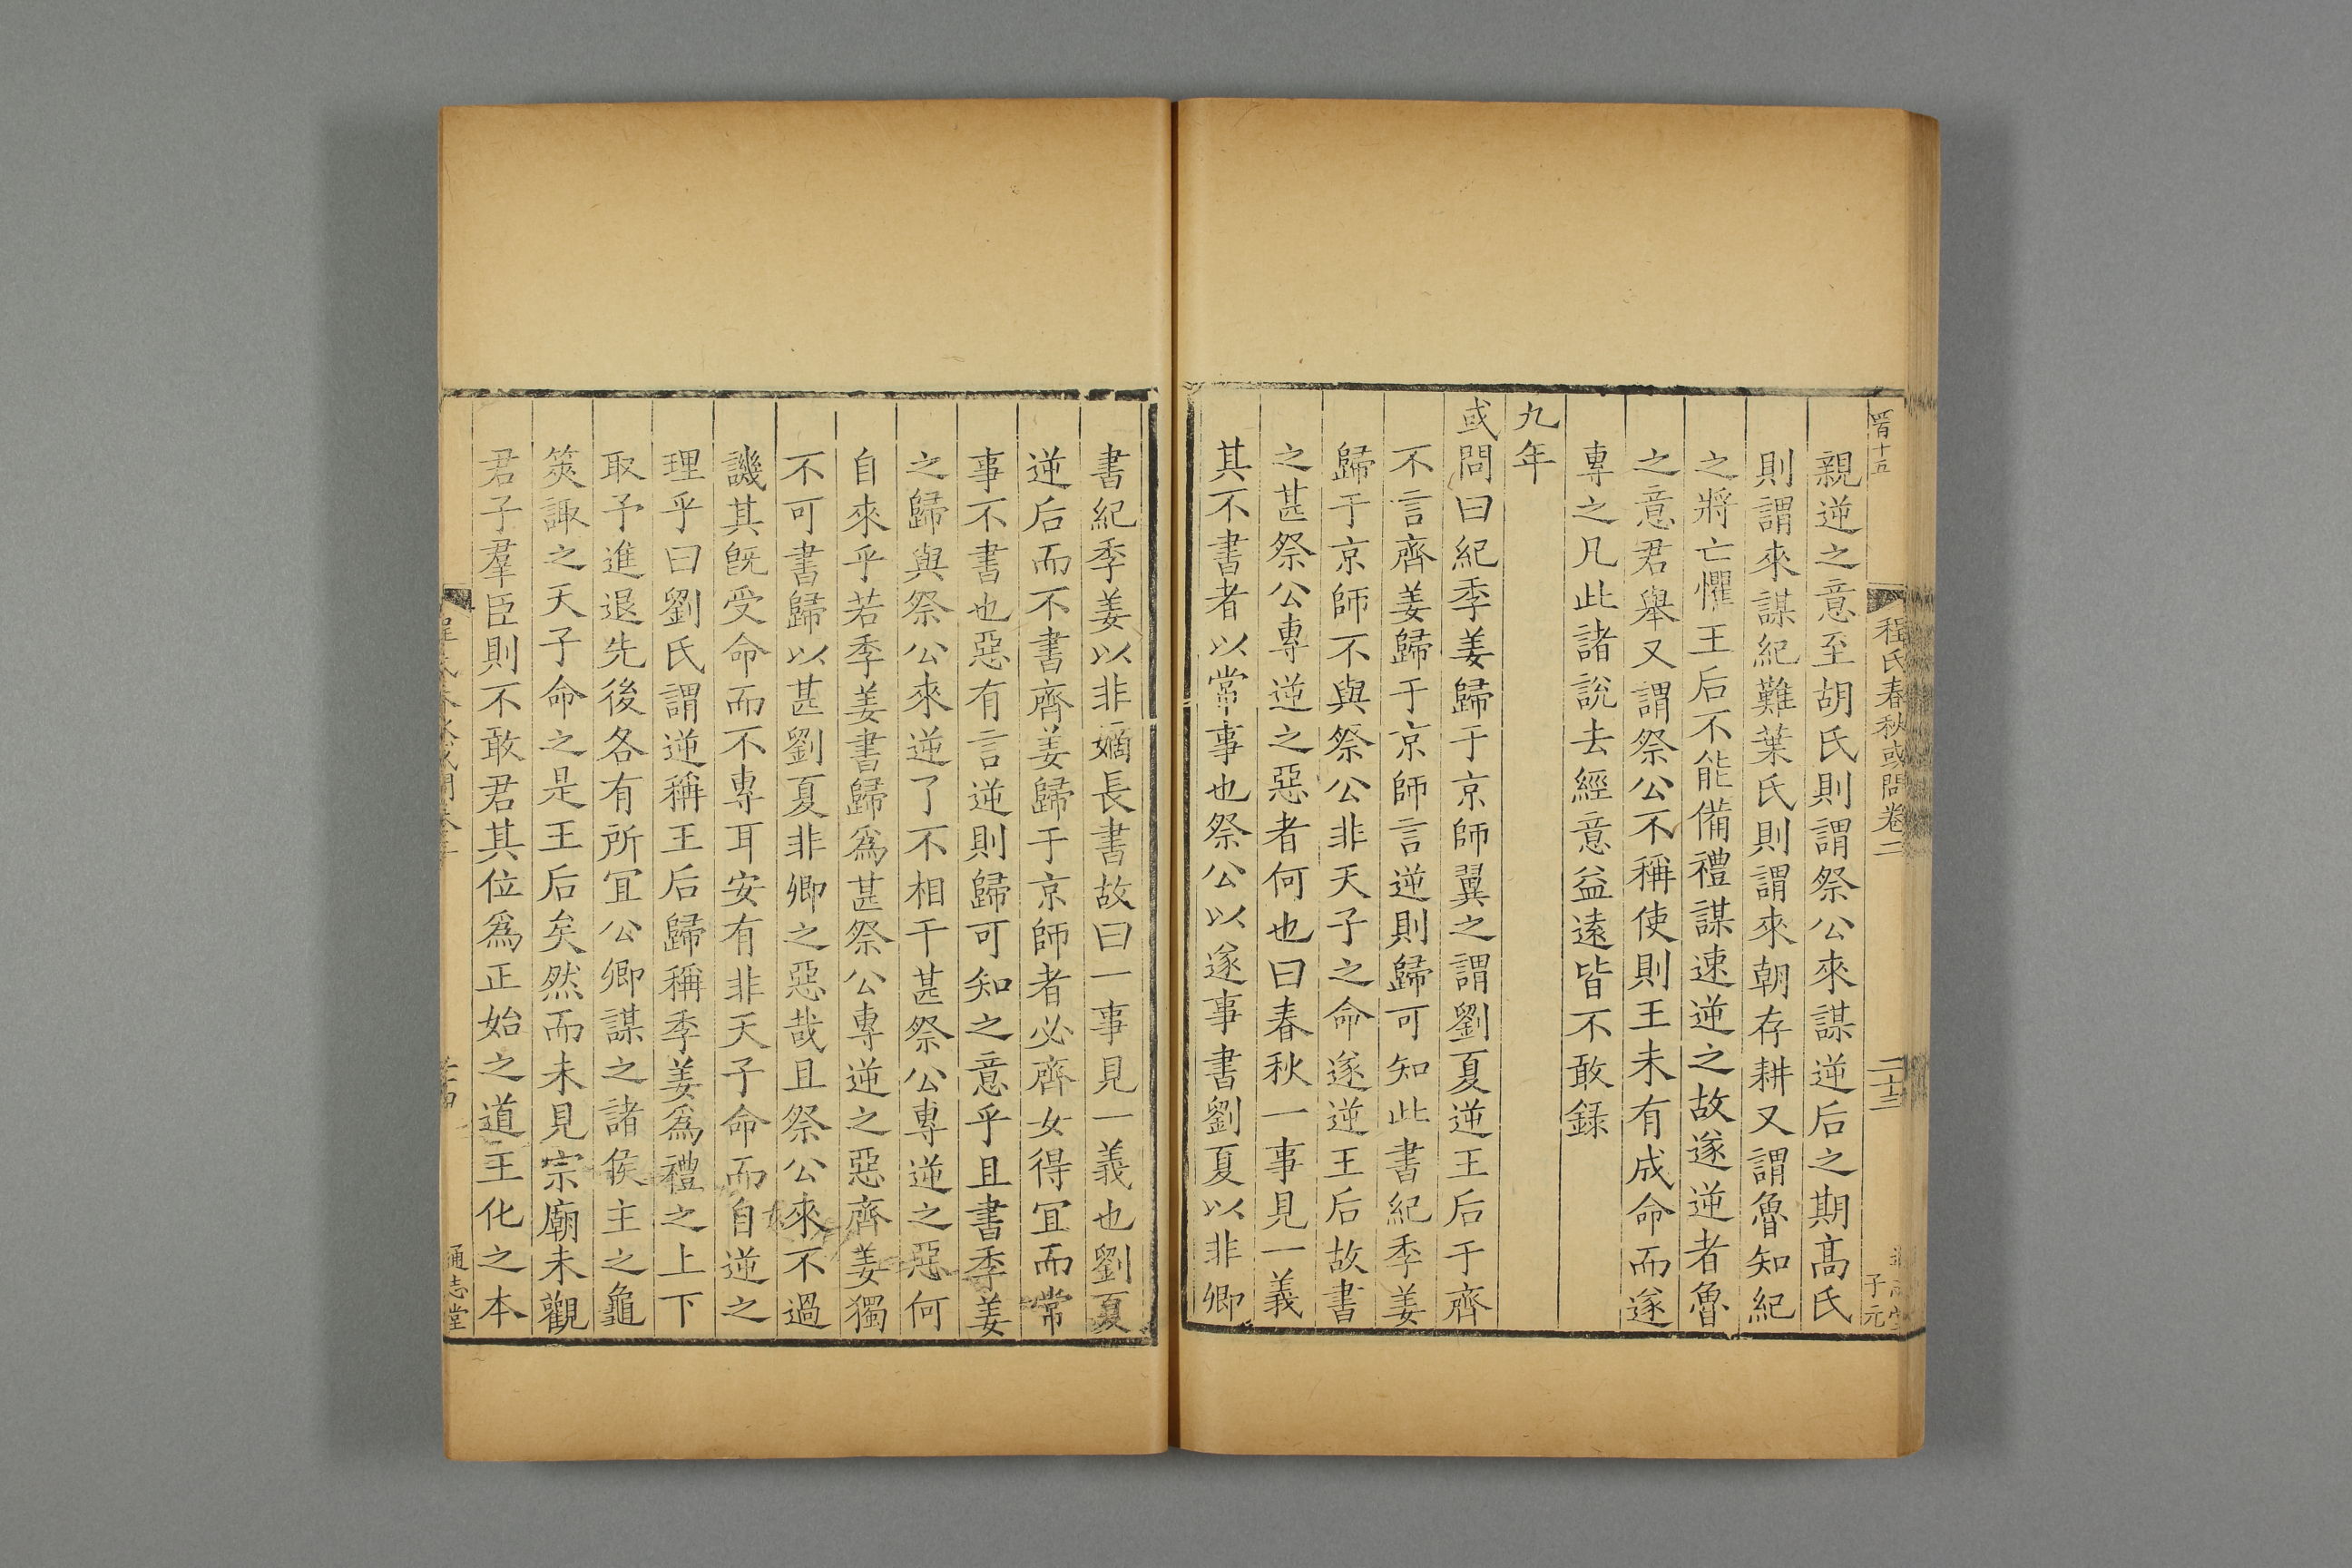 程氏春秋或問卷二
二十三
子元
親逆之意至胡氏則謂祭公來謀逆后之期高氏
則謂來謀紀難葉氏則謂來朝存耕又謂魯知紀
之將亡懼王后不能備禮謀速逆之故遂逆者魯
之意君舉又謂祭公不稱使則王未有成命而遂
專之凡此諸說去經意益遠皆不敢録
九年
或問曰紀季姜歸于京師翼之謂劉夏逆王后于齊
不言齊姜歸于京師言逆則歸可知此書紀季姜
歸于京師不與祭公非天子之命遂逆王后故書
之甚祭公專逆之惡者何也曰春秋一事見一義
其不書者以常事也祭公以遂事書劉夏以非卿
書紀季姜以非嫡長書故曰一事見一義也劉夏
逆后而不書齊姜歸于京師者必齊女得宜而常
事不書也惡有言逆則歸可知之意乎且書季姜
之歸與祭公來逆了不相干甚祭公專逆之惡何
自來乎若季姜書歸爲甚祭公專逆之惡齊姜獨
不可書歸以甚劉夏非卿之惡哉且祭公來不過
譏其旣受命而不專耳安有非天子命而自逆之
理乎曰劉氏謂逆稱王后歸稱季姜爲禮之上下
取予進退先後各有所冝公卿謀之諸侯主之龜
筴諏之天子命之是王后矣然而未見宗廟未觀
君子羣臣則不敢君其位爲正始之道王化之本
通志堂